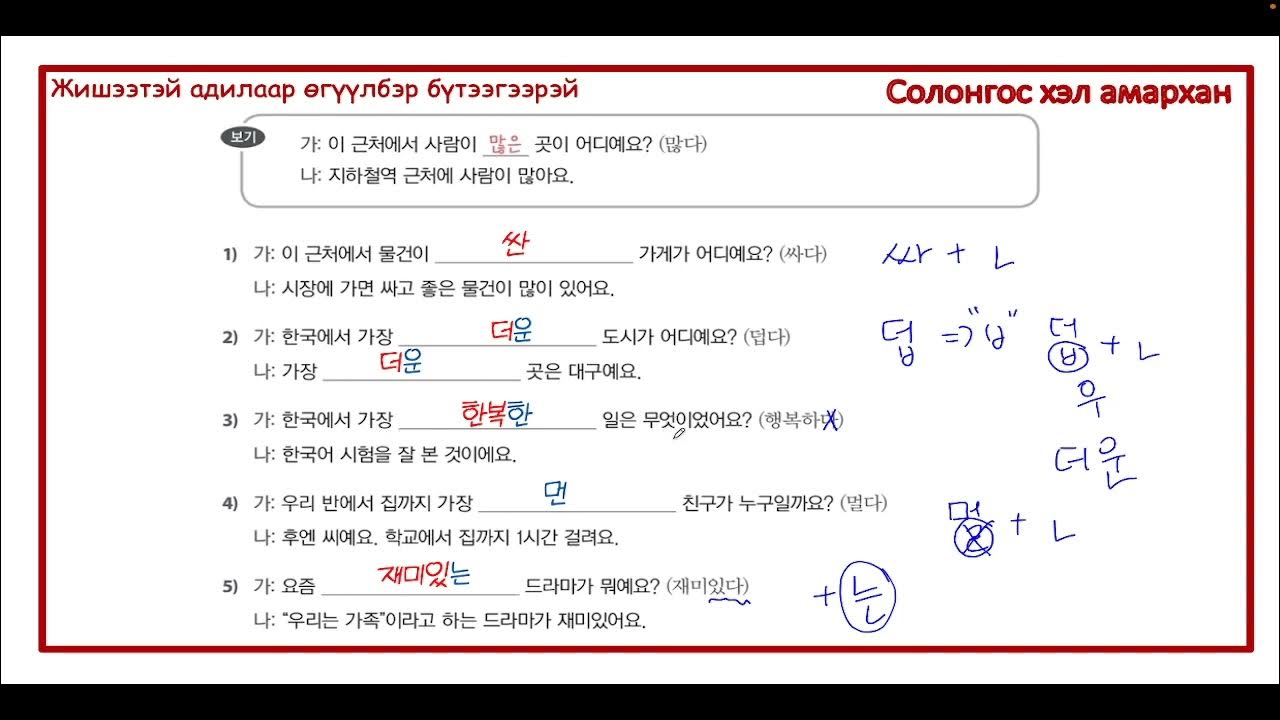 Жишээтэй адилаар өгүүлбэр бүтээгээрэй
Солонгос хэл амархан
보기
가: 이 근처에서 사람이 많은 곳이 어디예요? (많다)
나: 지하철역 근처에 사람이 많아요.
1) 가: 이 근처에서 물건이 싼 가게가 어디예요? (싸다)
싸 + ㄴ
나: 시장에 가면 싸고 좋은 물건이 많이 있어요.
2) 가: 한국에서 가장 더운 도시가 어디예요? (덥다)
덥 => "ㅂ" 덥 + ㄴ
나: 가장 더운 곳은 대구예요.
우
3) 가: 한국에서 가장 한복한 일은 무엇이었어요? (행복하다)
나: 한국어 시험을 잘 본 것이에요.
더운
4) 가: 우리 반에서 집까지 가장 맨 친구가 누구일까요? (멀다)
멀 + ㄴ
나: 후엔 씨예요. 학교에서 집까지 1시간 걸려요.
5) 가: 요즘 재미있는 드라마가 뭐예요? (재미있다)
+ 는
나: “우리는 가족”이라고 하는 드라마가 재미있어요.